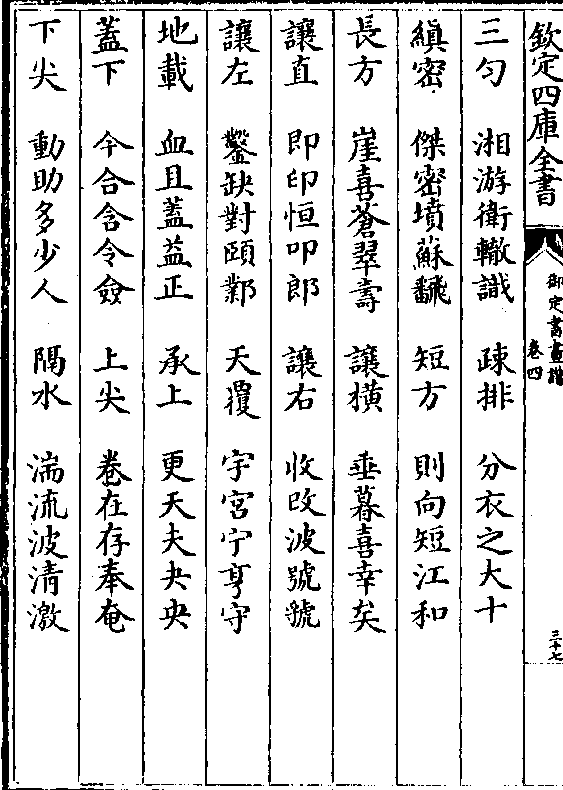 欽定四庫全書 御定書畫譜 卷四 三十七
三勻 湘游衛轍識 疎排 分衣之大十
縝密 傑密墳蘇飜 短方 則向短江和
長方 崖喜蒼翠壽 讓橫 垂暮喜幸矣
讓直 即印恒叩郎 讓右 收改波號號
讓左 鑿缺對頤鄴 天覆 宇宮宁亨守
地載 血且蓋益正 承上 更天夫夬央
蓋下 今合含令僉 上尖 卷在存奉奄
下尖 動助多少人 隔水 湍流波清激